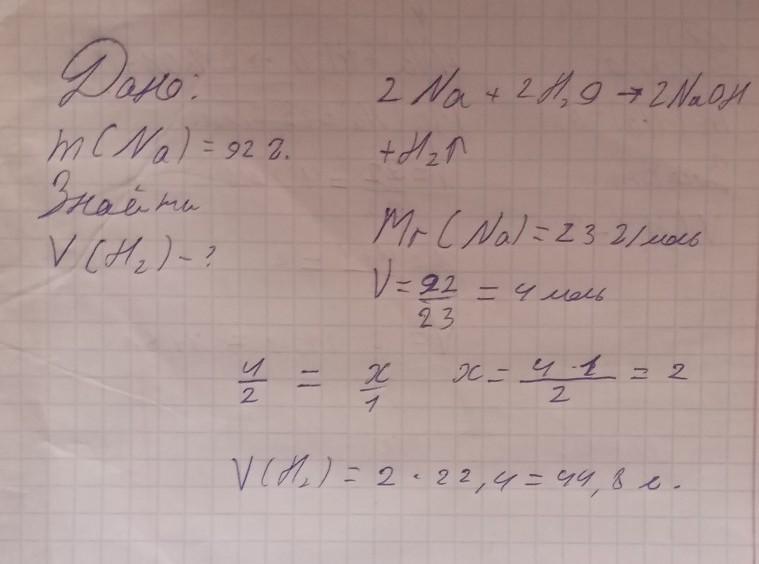 Дано:
m(Na) = 92 г.
Знайти
V(H₂) - ?
2Na + 2H₂O → 2NaOH
+ H₂↑
Mr(Na) = 23 г/моль
V = 92/23 = 4 моль
4/2 = x/1 x = 4·1/2 = 2
V(H₂) = 2 · 22,4 = 44,8 л.